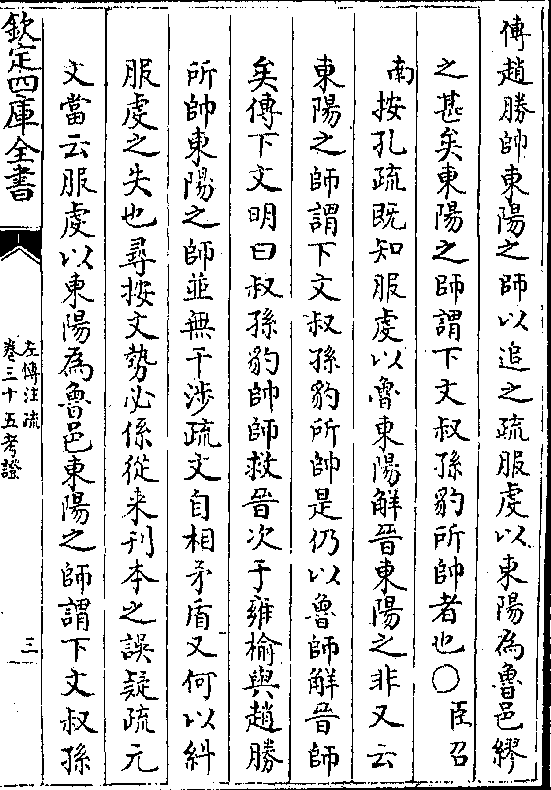 傳趙勝帥東陽之師以追之疏服虔以東陽為魯邑繆
之甚矣東陽之師謂下文叔孫豹所帥者也○臣召
南按孔疏既知服虔以魯東陽解晉東陽之非又云
東陽之師謂下文叔孫豹所帥是仍以魯師解晉師
矣傳下文明曰叔孫豹帥師救晉次于雍榆與趙勝
所帥東陽之師並無干涉疏文自相矛盾又何以糾
服虔之失也尋按文勢必係從来刊本之誤疑疏元
文當云服虔以東陽為魯邑東陽之師謂下文叔孫
欽定四庫全書
左傳注疏
卷三十五考證
三